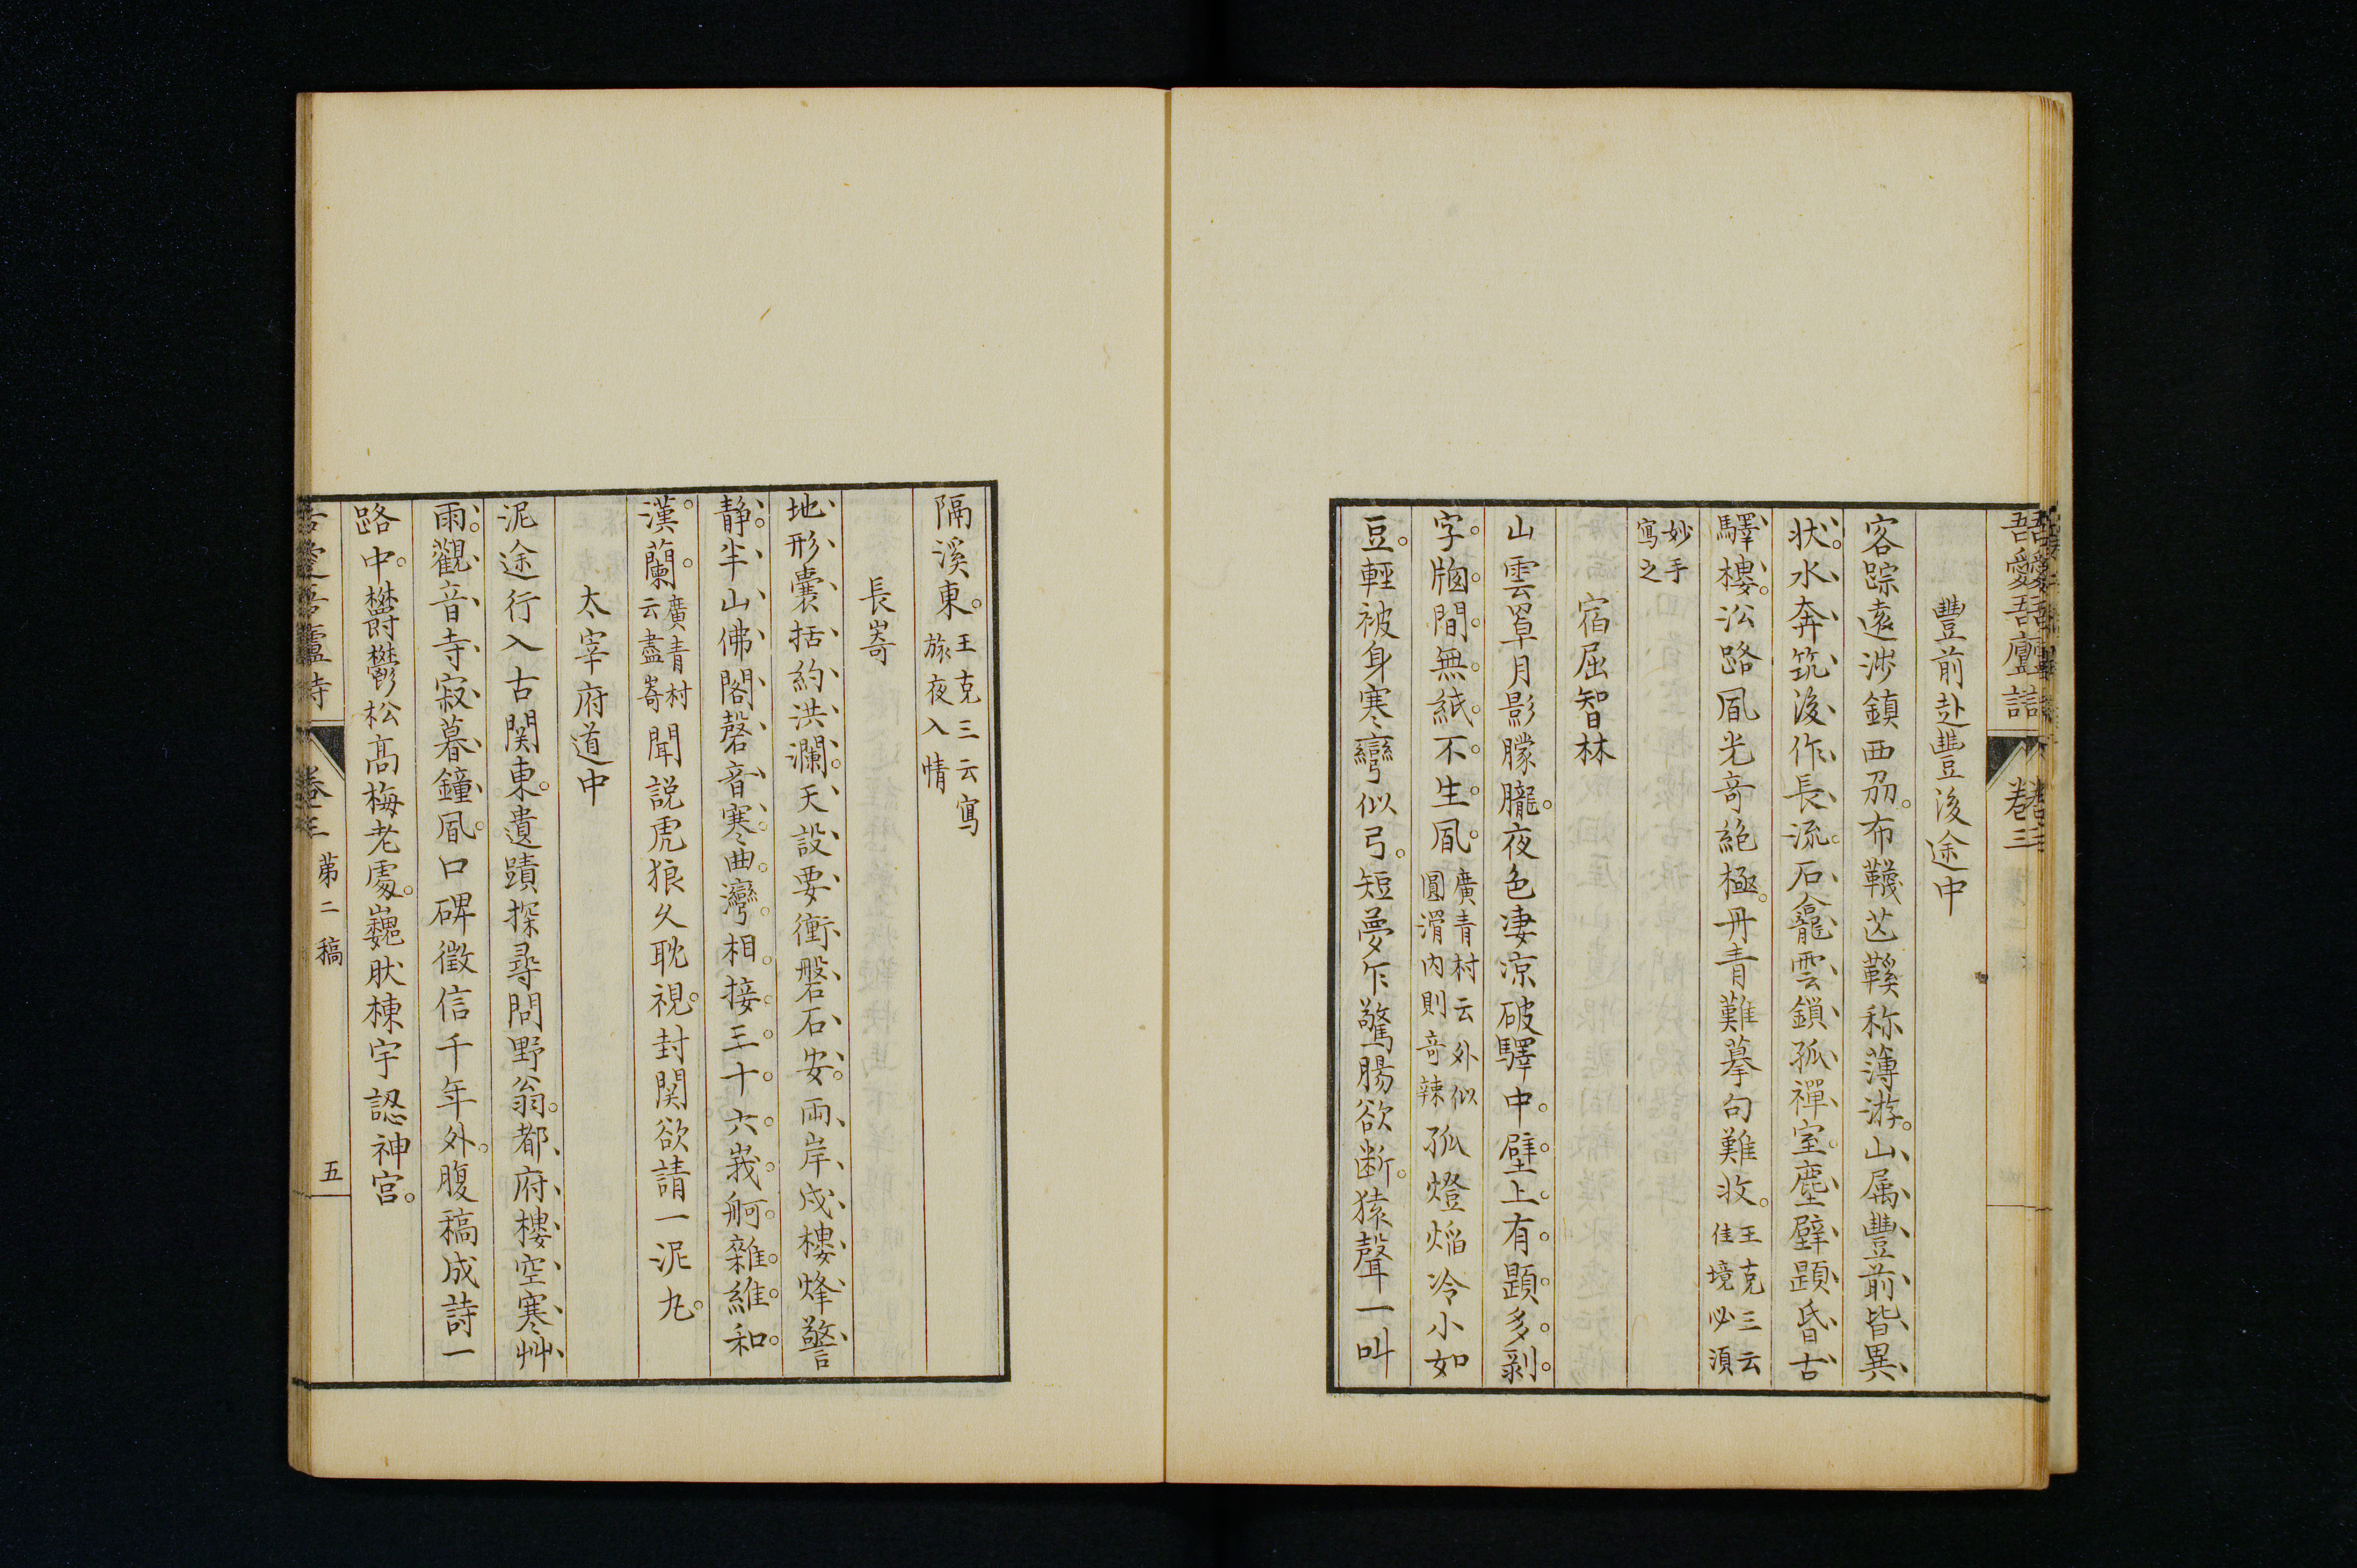 吾愛吾廬詩 卷三
豐前赴豐後途中
客踪遠渉鎮西刕。布韈芒鞵称薄游。山属豐前皆異
状。水奔筑後作長流。石龕雲鎖孤禪室。塵壁題昏古
驛樓。㳂路凮光竒絶極。丹青難摹句難收。王克三云佳境必須
妙手寫之
宿屈智林
山雲罩月影朦朧。夜色凄凉破驛中。壁上有題多剥
字。牕間無紙不生凮。廣青村云外似圓滑内則竒辣孤燈焰冷小如
豆。輕被身寒彎似弓。短夢乍驚腸欲断。猿聲一叫
隔溪東。王克三云寫旅夜入情
長嵜
地形囊括約洪瀾。天設要衝磐石安。兩岸戍樓烽警
静。半山佛閣磬音寒。曲灣相接三十六。峩舸雜維和
漢蘭。廣青村云盡嵜聞説虎狼久耽視。封関欲請一泥丸。
太宰府道中
泥途行入古関東。遺蹟探尋問野翁。都府樓空寒艸
雨。觀音寺寂暮鐘凮。口碑徵信千年外。腹稿成詩一
路中。欝欝松高梅老處。巍肰棟宇認神宮。
吾愛吾廬詩 卷三 第二稿 五